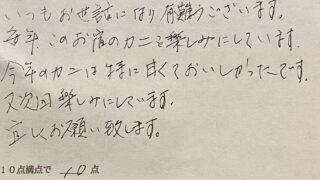 いつもお世話になり有難うございます。
毎年このお宿のカニを楽しみにしています.
今年のカニは特に甘くておいしかったです.
又次回楽しみにしています.
宜しくお願い致します。
10点満点で 10 点